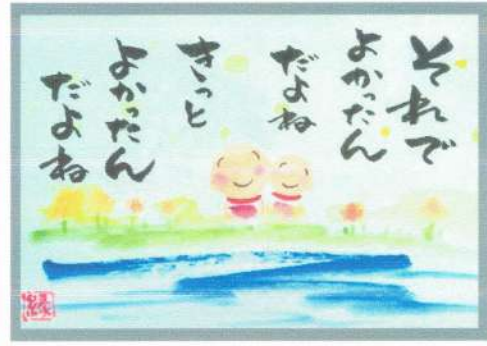 それで
よかったん
だよね
きっと
よかったん
だよね
縁